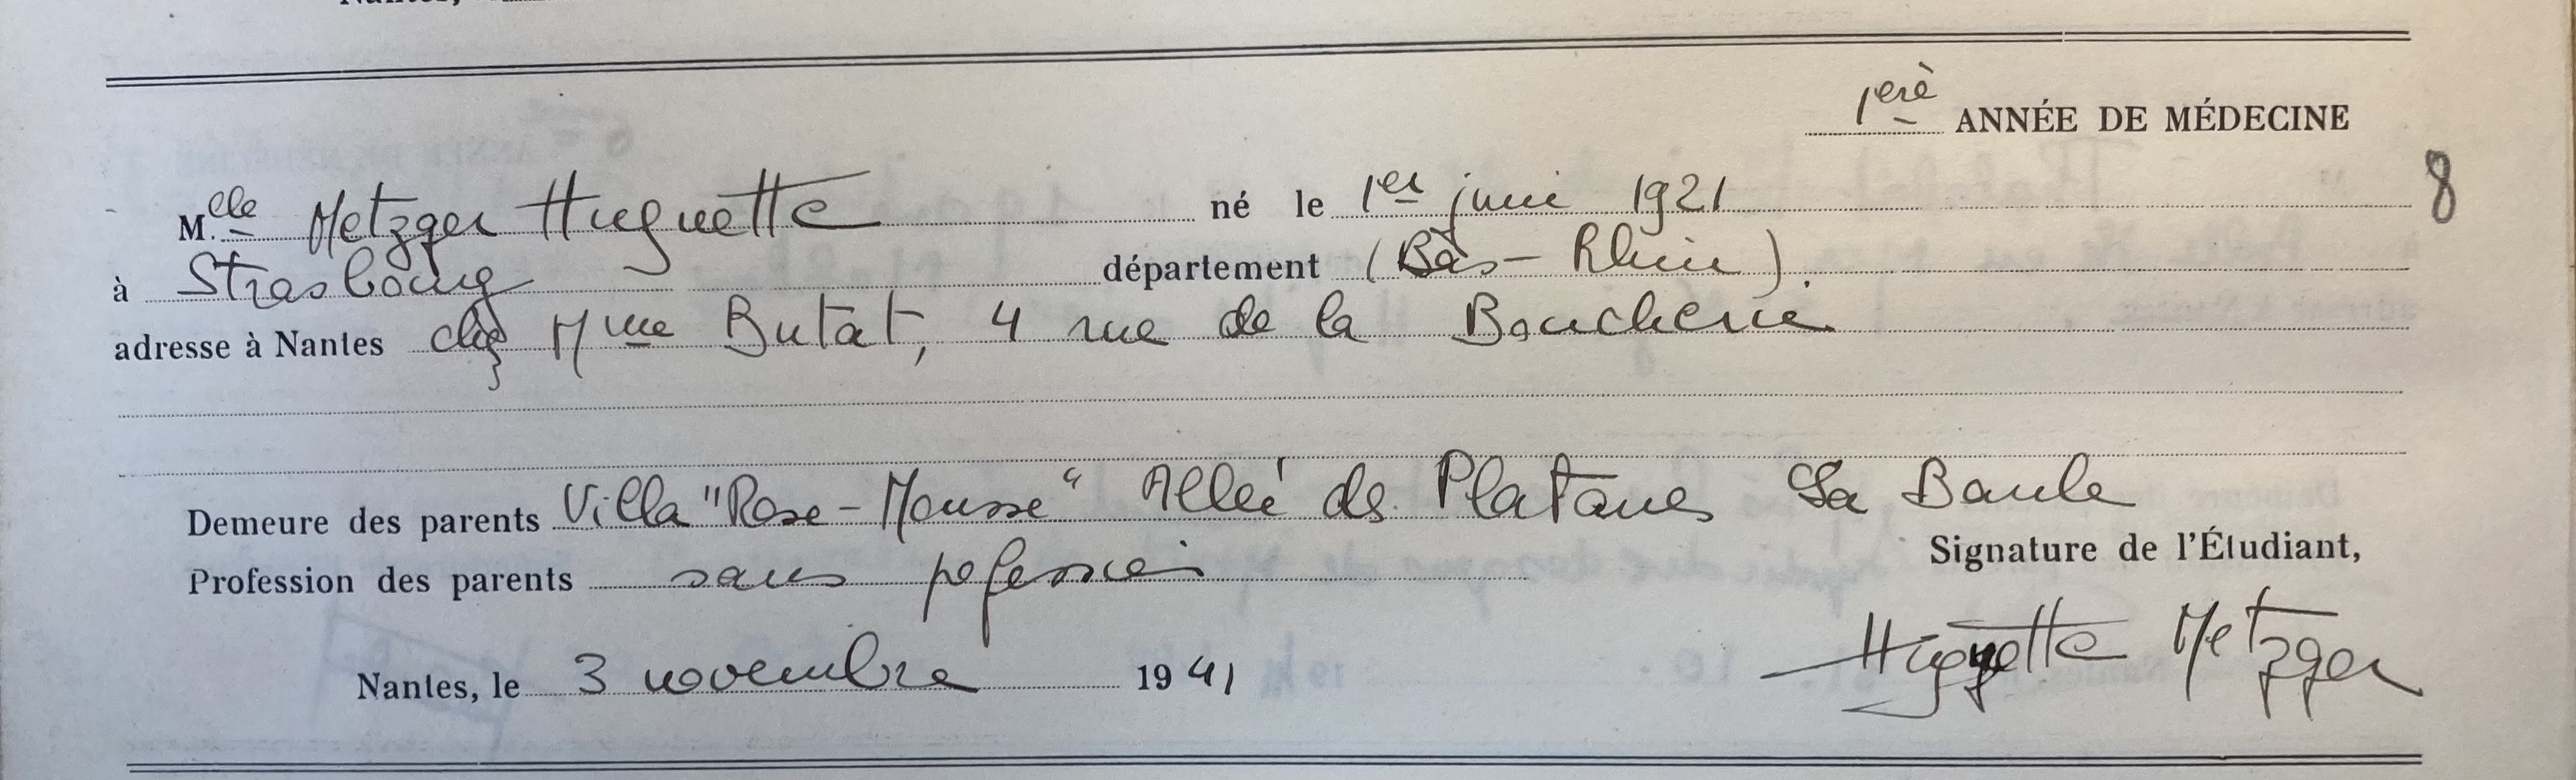 1ère ANNÉE DE MÉDECINE
8
M.elle Metzger Huguette né le 1er juin 1921
à Strasbourg département (Bas-Rhin).
adresse à Nantes chez Mme Butat, 4 rue de la Boucherie
Demeure des parents Villa "Rose-Mousse" Allée des Platanes La Baule
Profession des parents sans profession
Signature de l'Étudiant,
Nantes, le 3 novembre 1941
Huguette Metzger